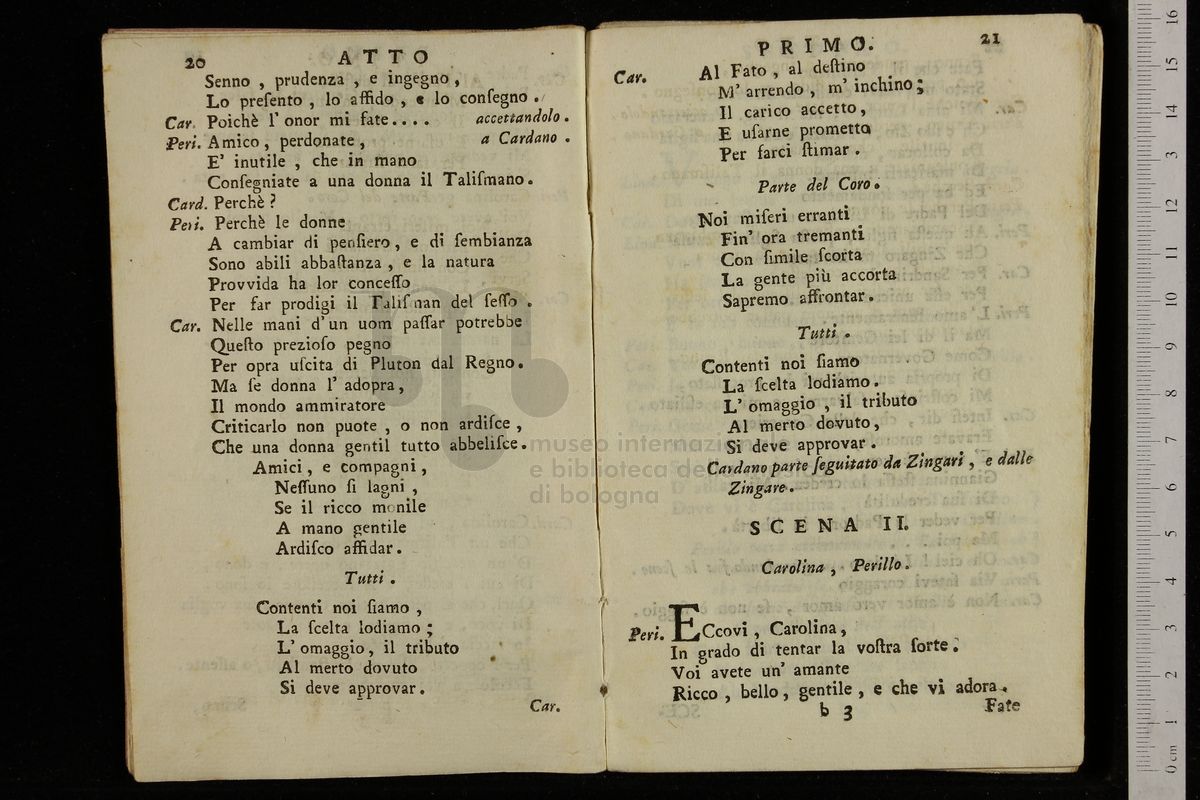 20 ATTO
Senno , prudenza , e ingegno ,
Lo preſento , lo affido , e lo conſegno .
Car. Poichè l' onor mi fate.... accettandolo .
Peri. Amico , perdonate , a Cardano .
E' inutile , che in mano
Conſegniate a una donna il Taliſmano.
Card. Perchè ?
Peri. Perchè le donne
A cambiar di penſiero , e di ſembianza
Sono abili abbaſtanza , e la natura
Provvida ha lor conceſſo
Per far prodigi il Taliſman del ſeſſo .
Car. Nelle mani d' un uom paſſar potrebbe
Queſto prezioſo pegno
Per opra uſcita di Pluton dal Regno.
Ma ſe donna l' adopra,
Il mondo ammiratore
Criticarlo non puote , o non ardiſce ,
Che una donna gentil tutto abbeliſce.
Amici , e compagni ,
Neſſuno ſi lagni ,
Se il ricco monile
A mano gentile
Ardiſco affidar.
Tutti .
Contenti noi ſiamo ,
La ſcelta lodiamo ;
L' omaggio , il tributo
Al merto dovuto
Si deve approvar.
Car.
PRIMO. 21
Car. Al Fato , al deſtino
M' arrendo , m' inchino ;
Il carico accetto,
E uſarne prometto
Per farci ſtimar .
Parte del Coro.
Noi miſeri erranti
Fin' ora tremanti
Con ſimile ſcorta
La gente più accorta
Sapremo affrontar.
Tutti .
Contenti noi ſiamo
La ſcelta lodiamo.
L' omaggio , il tributo
Al merto dovuto,
Si deve approvar .
Cardano parte ſeguitato da Zingari , e dalle
Zingare.
SCENA II.
Carolina , Perillo.
Peri. ECcovi , Carolina,
In grado di tentar la voſtra ſorte.
Voi avete un' amante
Ricco , bello , gentile , e che vi adora.
b 3 Fate
museo internazionale
e biblioteca della musica
di bologna